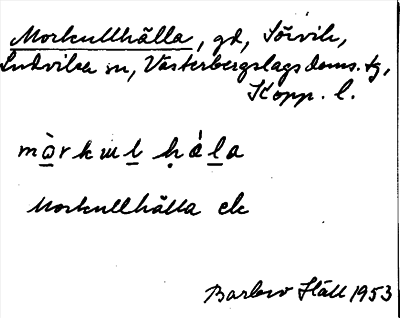 Morkullhälla, gd, Sörvik,
Ludvika sn, Västerbergslags doms. tg,
Kopp. l.
mòrkul hála
Morkullhälla ek
Ståll 1953